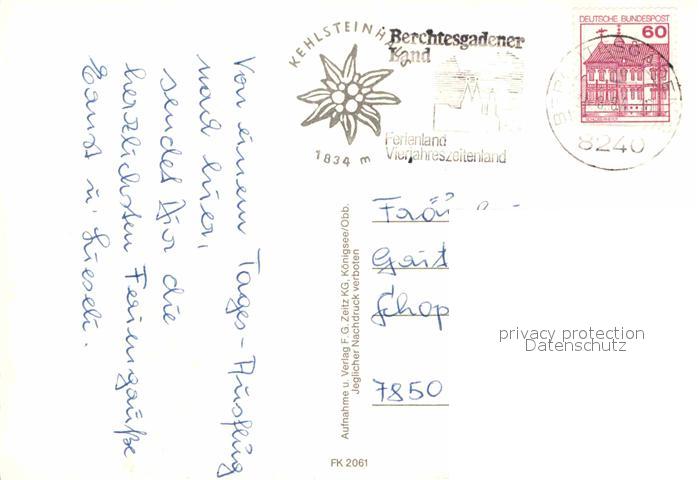 KEHLSTEINHAUS
1834 m
Berchtesgadener
Land
Ferienland
Vierjahreszeitenland
DEUTSCHE BUNDESPOST
60
8240
Von einem Tages-Ausflug
nach hier,
sendet Dir die
herzlichsten Feriengrüße
Ernst u. Liesel.
Aufnahme u. Verlag F. G. Zeitz KG, Königsee/Obb.
Jeglicher Nachdruck verboten
FK 2061
7850
privacy protection
Datenschutz